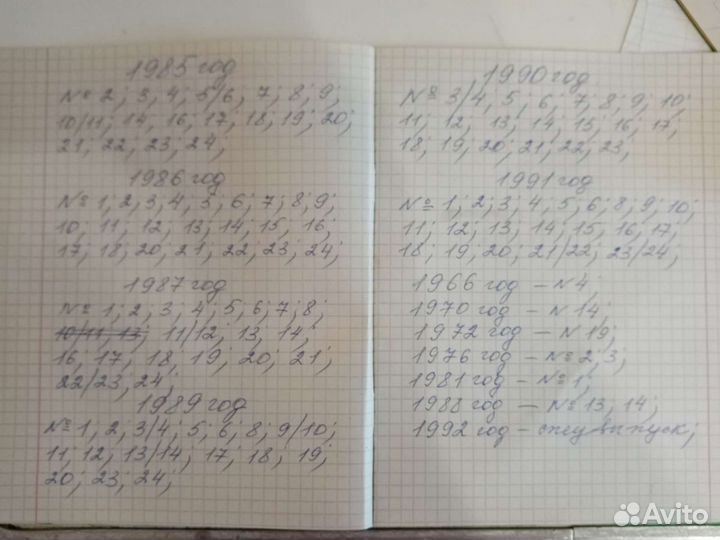 1985 год
№ 2; 3, 4; 5/6, 7; 8; 9;
10/11; 14, 16, 17; 18; 19; 20;
21, 22, 23; 24;
1986 год
№ 1; 2; 3, 4; 5; 6; 7; 8; 9;
10; 11; 12; 13; 14; 15; 16;
17; 18; 20, 21; 22; 23; 24;
1987 год
№ 1; 2; 3; 4; 5; 6; 7; 8;
10/11, 13; 11/12; 13; 14;
16, 17; 18; 19; 20; 21;
22/23, 24;
1989 год
№ 1, 2, 3/4; 5; 6; 8; 9/10;
11; 12, 13/14; 17; 18; 19;
20; 23; 24;
1990 год
№ 3/4, 5, 6; 7; 8; 9; 10;
11; 12; 13; 14; 15; 16; 17;
18; 19; 20; 21; 22; 23;
1991 год
№ 1; 2; 3; 4; 5; 6; 8; 9; 10;
11; 12; 13; 14; 15; 16, 17;
18; 19, 20; 21/22; 23/24;
1966 год – N 4;
1970 год – N 14;
1972 год – N 19;
1976 год – № 2, 3;
1981 год – № 1;
1988 год – № 13, 14;
1992 год – спецвыпуск;
Avito